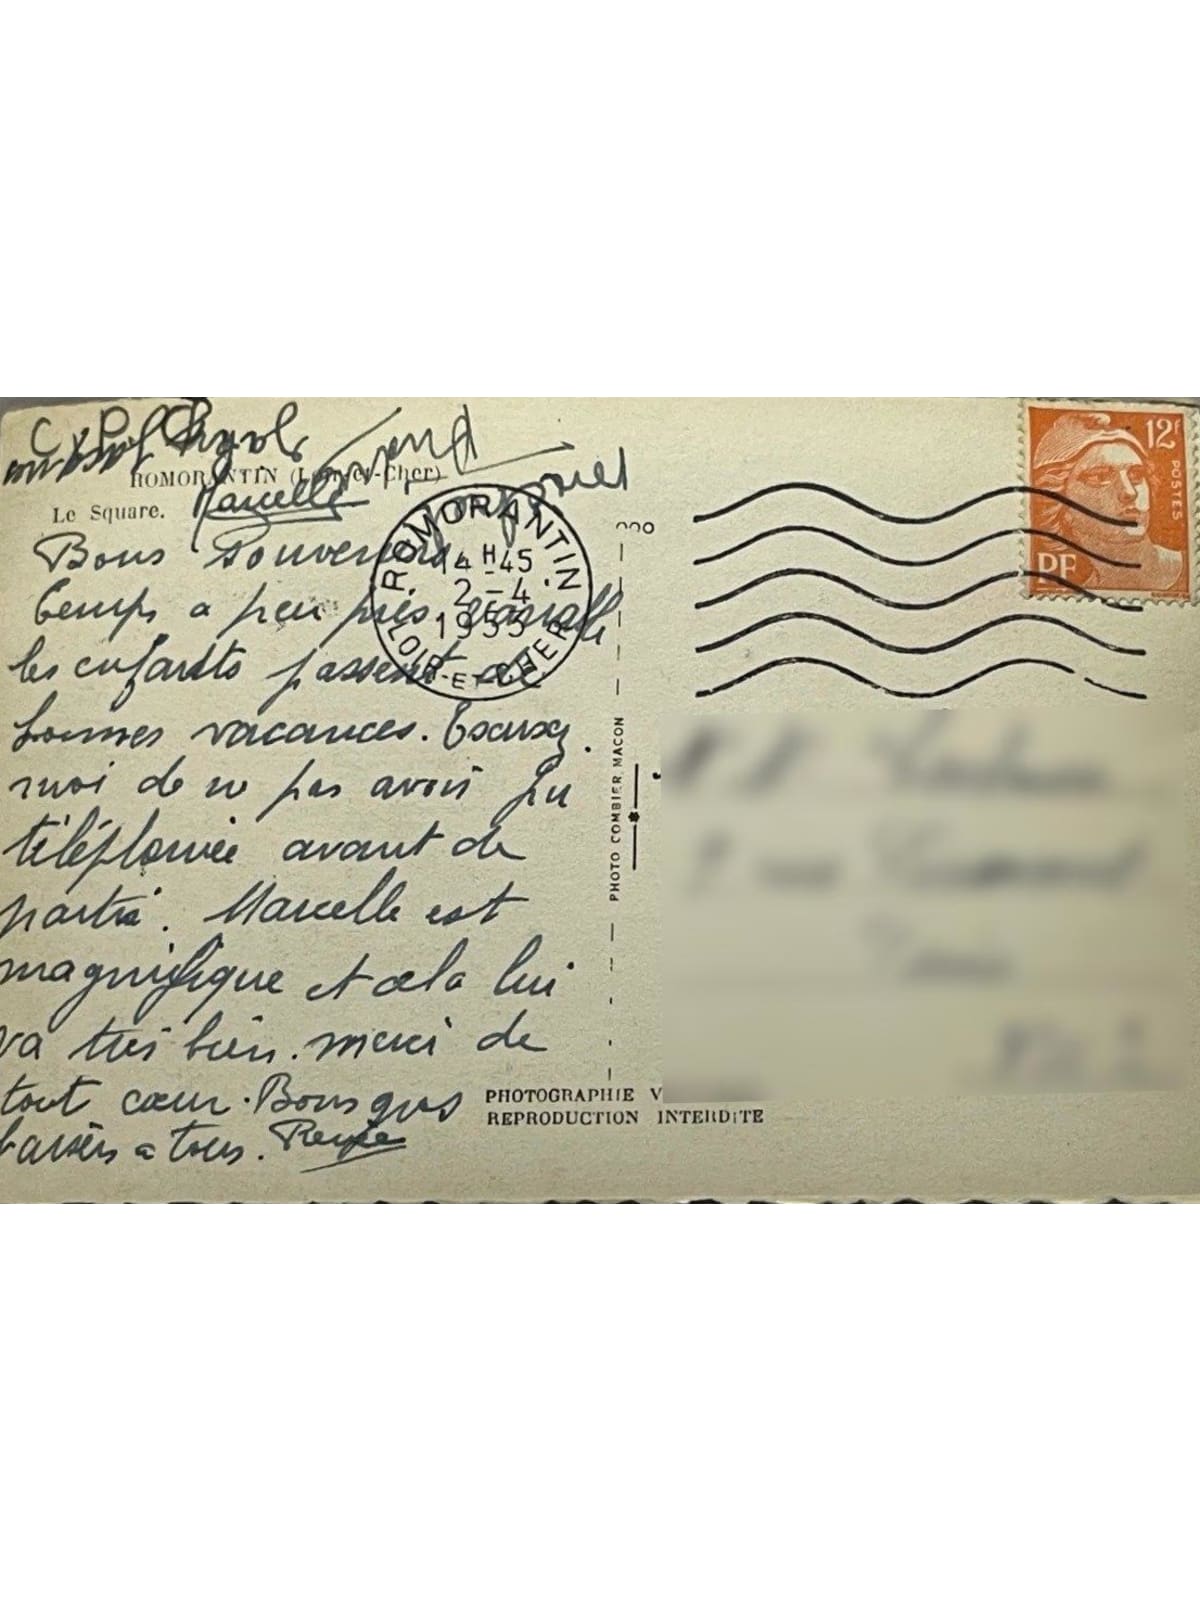 ROMORANTIN (Loir-et-Cher)
Marcelle
Le Square.
Bons Souvenirs
temps a peu près
les enfants passent de
bonnes vacances. Excusez.
moi de ne pas avoir pu
téléphoner avant de
partir. Marcelle est
magnifique et cela lui
va très bien. merci de
tout cœur. Bons gros
baisers a tous. Renée
ROMORANTIN
14 H 45
2 - 4
1953
LOIR-ET-CHER
12F
POSTES
RF
PHOTO COMBIER MACON
PHOTOGRAPHIE V
REPRODUCTION INTERDITE